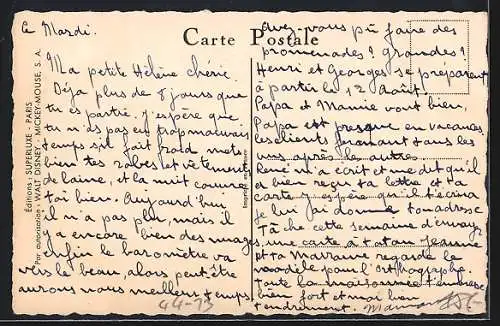 Carte Postale
Éditions : SUPERLUXE - PARIS
Par autorisation : WALT DISNEY - MICKEY-MOUSE, S. A.
Ce Mardi.
Ma petite Hélène chérie.
Déjà plus de 8 jours que
tu es partie. J'espère que
tu n'as pas eu trop mauvais
temps s'il fait froid mets
bien tes robes et vêtements
de laine, et la nuit couvre
toi bien. Aujourd'hui
il n'a pas plu, mais il
y a encore bien des nuages
enfin le baromètre va
vers le beau, alors peut-être
aurons nous meilleur temps.
Avez-vous pû faire des
promenades? grandes?
Henri et Georges se préparent
à partir le 12 Août.
Papa et Mamie vont bien
Papa est presque en vacances
les clients fermant tous les
uns après les autres.
René m'a écrit et me dit qu'il
a bien reçu ta lettre et ta
carte j'espère qu'il t'écrira
je lui ai donné ton adresse
Tâche cette semaine d'envoyer
une carte à tatan Jeanne
et ta Marraine regarde le
modèle pour l'orthographe.
toute la maisonnée t'embrasse
bien fort et moi bien
tendrement. Maman